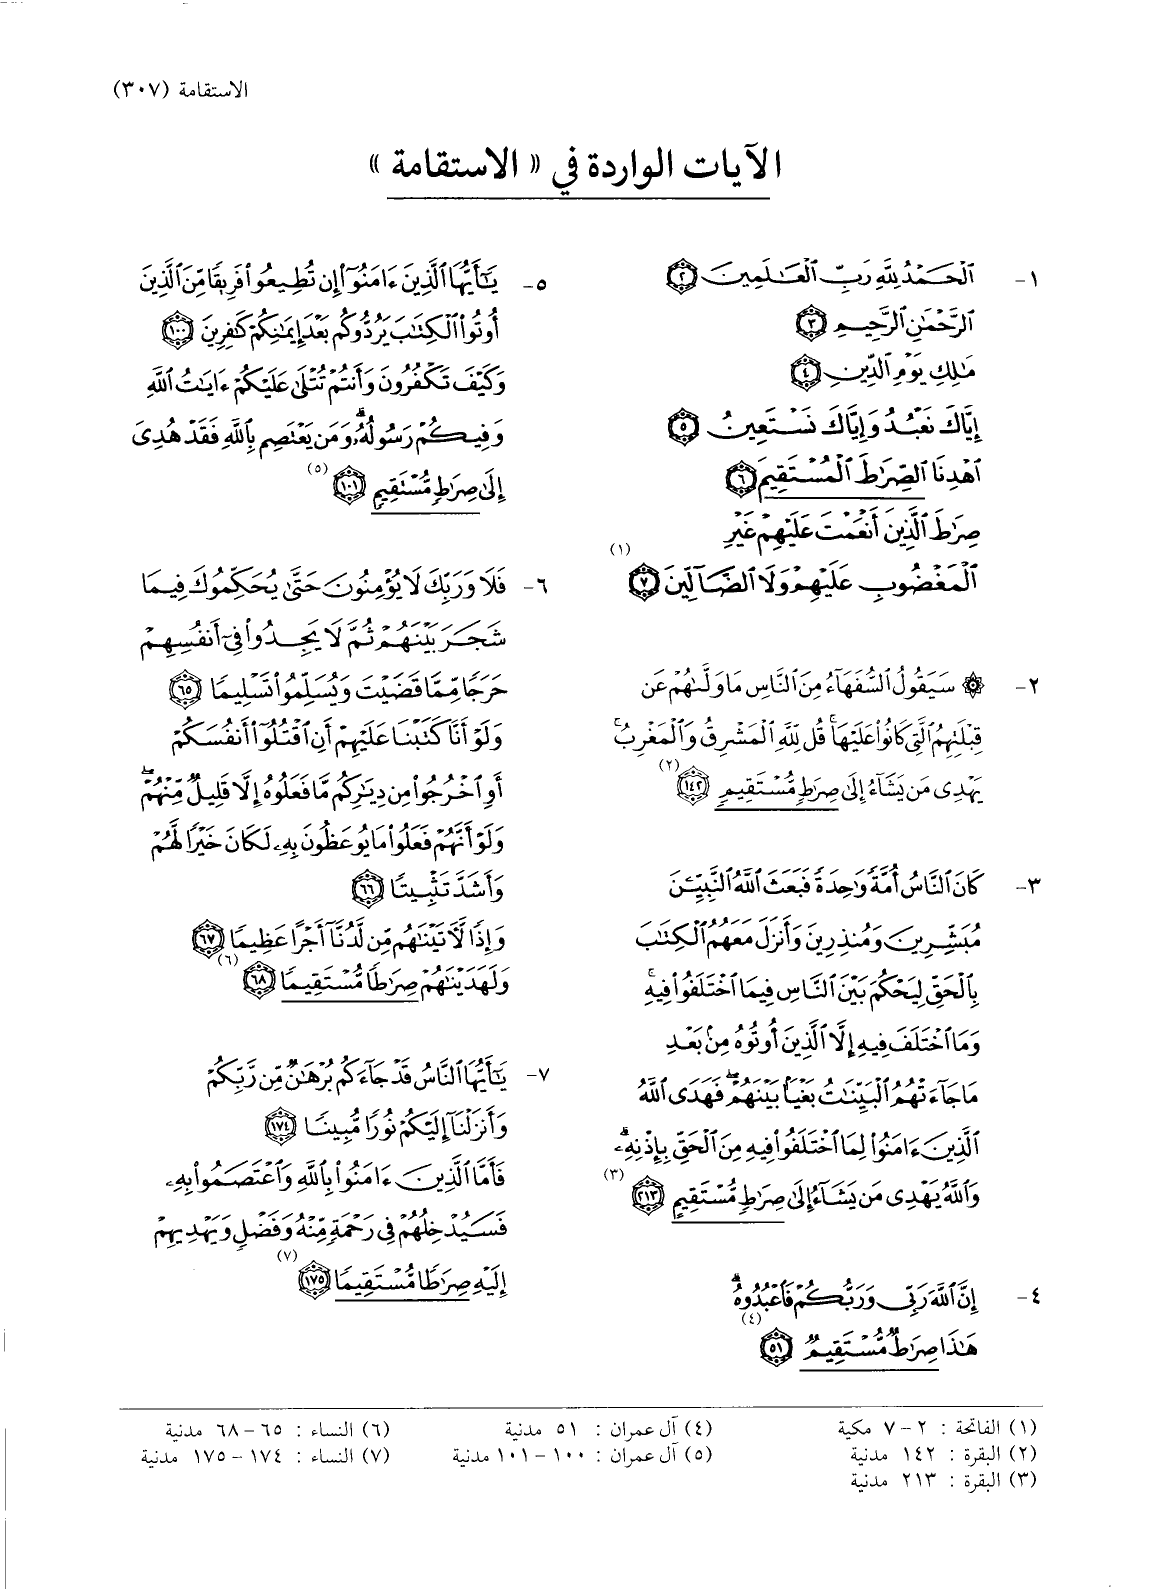 الاستقامة (٣٠٧)
الآيات الواردة في « الاستقامة »
١- ٱلْحَمْدُ لِلَّهِ رَبِّ ٱلْعَٰلَمِينَ ٢
ٱلرَّحْمَٰنِ ٱلرَّحِيمِ ٣
مَٰلِكِ يَوْمِ ٱلدِّينِ ٤
إِيَّاكَ نَعْبُدُ وَإِيَّاكَ نَسْتَعِينُ ٥
ٱهْدِنَا ٱلصِّرَٰطَ ٱلْمُسْتَقِيمَ ٦
صِرَٰطَ ٱلَّذِينَ أَنْعَمْتَ عَلَيْهِمْ غَيْرِ
ٱلْمَغْضُوبِ عَلَيْهِمْ وَلَا ٱلضَّآلِّينَ ٧ (١)
٢- ۞ سَيَقُولُ ٱلسُّفَهَآءُ مِنَ ٱلنَّاسِ مَا وَلَّىٰهُمْ عَن
قِبْلَتِهِمُ ٱلَّتِى كَانُوا۟ عَلَيْهَا ۚ قُل لِّلَّهِ ٱلْمَشْرِقُ وَٱلْمَغْرِبُ ۚ
يَهْدِى مَن يَشَآءُ إِلَىٰ صِرَٰطٍ مُّسْتَقِيمٍ ١٤٢ (٢)
٣- كَانَ ٱلنَّاسُ أُمَّةً وَٰحِدَةً فَبَعَثَ ٱللَّهُ ٱلنَّبِيِّۦنَ
مُبَشِّرِينَ وَمُنذِرِينَ وَأَنزَلَ مَعَهُمُ ٱلْكِتَٰبَ
بِٱلْحَقِّ لِيَحْكُمَ بَيْنَ ٱلنَّاسِ فِيمَا ٱخْتَلَفُوا۟ فِيهِ ۚ
وَمَا ٱخْتَلَفَ فِيهِ إِلَّا ٱلَّذِينَ أُوتُوهُ مِنۢ بَعْدِ
مَا جَآءَتْهُمُ ٱلْبَيِّنَٰتُ بَغْيًۢا بَيْنَهُمْ ۖ فَهَدَى ٱللَّهُ
ٱلَّذِينَ ءَامَنُوا۟ لِمَا ٱخْتَلَفُوا۟ فِيهِ مِنَ ٱلْحَقِّ بِإِذْنِهِۦ ۗ
وَٱللَّهُ يَهْدِى مَن يَشَآءُ إِلَىٰ صِرَٰطٍ مُّسْتَقِيمٍ ٢١٣ (٣)
٤- إِنَّ ٱللَّهَ رَبِّى وَرَبُّكُمْ فَٱعْبُدُوهُ ۗ
هَٰذَا صِرَٰطٌ مُّسْتَقِيمٌ ٥١ (٤)
٥- يَٰٓأَيُّهَا ٱلَّذِينَ ءَامَنُوٓا۟ إِن تُطِيعُوا۟ فَرِيقًا مِّنَ ٱلَّذِينَ
أُوتُوا۟ ٱلْكِتَٰبَ يَرُدُّوكُم بَعْدَ إِيمَٰنِكُمْ كَٰفِرِينَ ١٠٠
وَكَيْفَ تَكْفُرُونَ وَأَنتُمْ تُتْلَىٰ عَلَيْكُمْ ءَايَٰتُ ٱللَّهِ
وَفِيكُمْ رَسُولُهُۥ ۗ وَمَن يَعْتَصِم بِٱللَّهِ فَقَدْ هُدِىَ
إِلَىٰ صِرَٰطٍ مُّسْتَقِيمٍ ١٠١ (٥)
٦- فَلَا وَرَبِّكَ لَا يُؤْمِنُونَ حَتَّىٰ يُحَكِّمُوكَ فِيمَا
شَجَرَ بَيْنَهُمْ ثُمَّ لَا يَجِدُوا۟ فِىٓ أَنفُسِهِمْ
حَرَجًا مِّمَّا قَضَيْتَ وَيُسَلِّمُوا۟ تَسْلِيمًا ٦٥
وَلَوْ أَنَّا كَتَبْنَا عَلَيْهِمْ أَنِ ٱقْتُلُوٓا۟ أَنفُسَكُمْ
أَوِ ٱخْرُجُوا۟ مِن دِيَٰرِكُم مَّا فَعَلُوهُ إِلَّا قَلِيلٌ مِّنْهُمْ ۖ
وَلَوْ أَنَّهُمْ فَعَلُوا۟ مَا يُوعَظُونَ بِهِۦ لَكَانَ خَيْرًا لَّهُمْ
وَأَشَدَّ تَثْبِيتًا ٦٦
وَإِذًا لَّءَاتَيْنَٰهُم مِّن لَّدُنَّآ أَجْرًا عَظِيمًا ٦٧
وَلَهَدَيْنَٰهُمْ صِرَٰطًا مُّسْتَقِيمًا ٦٨ (٦)
٧- يَٰٓأَيُّهَا ٱلنَّاسُ قَدْ جَآءَكُم بُرْهَٰنٌ مِّن رَّبِّكُمْ
وَأَنزَلْنَآ إِلَيْكُمْ نُورًا مُّبِينًا ١٧٤
فَأَمَّا ٱلَّذِينَ ءَامَنُوا۟ بِٱللَّهِ وَٱعْتَصَمُوا۟ بِهِۦ
فَسَيُدْخِلُهُمْ فِى رَحْمَةٍ مِّنْهُ وَفَضْلٍ وَيَهْدِيهِمْ
إِلَيْهِ صِرَٰطًا مُّسْتَقِيمًا ١٧٥ (٧)
(١) الفاتحة : ٢ – ٧ مكية
(٢) البقرة : ١٤٢ مدنية
(٣) البقرة : ٢١٣ مدنية
(٤) آل عمران : ٥١ مدنية
(٥) آل عمران : ١٠٠ – ١٠١ مدنية
(٦) النساء : ٦٥ – ٦٨ مدنية
(٧) النساء : ١٧٤ – ١٧٥ مدنية